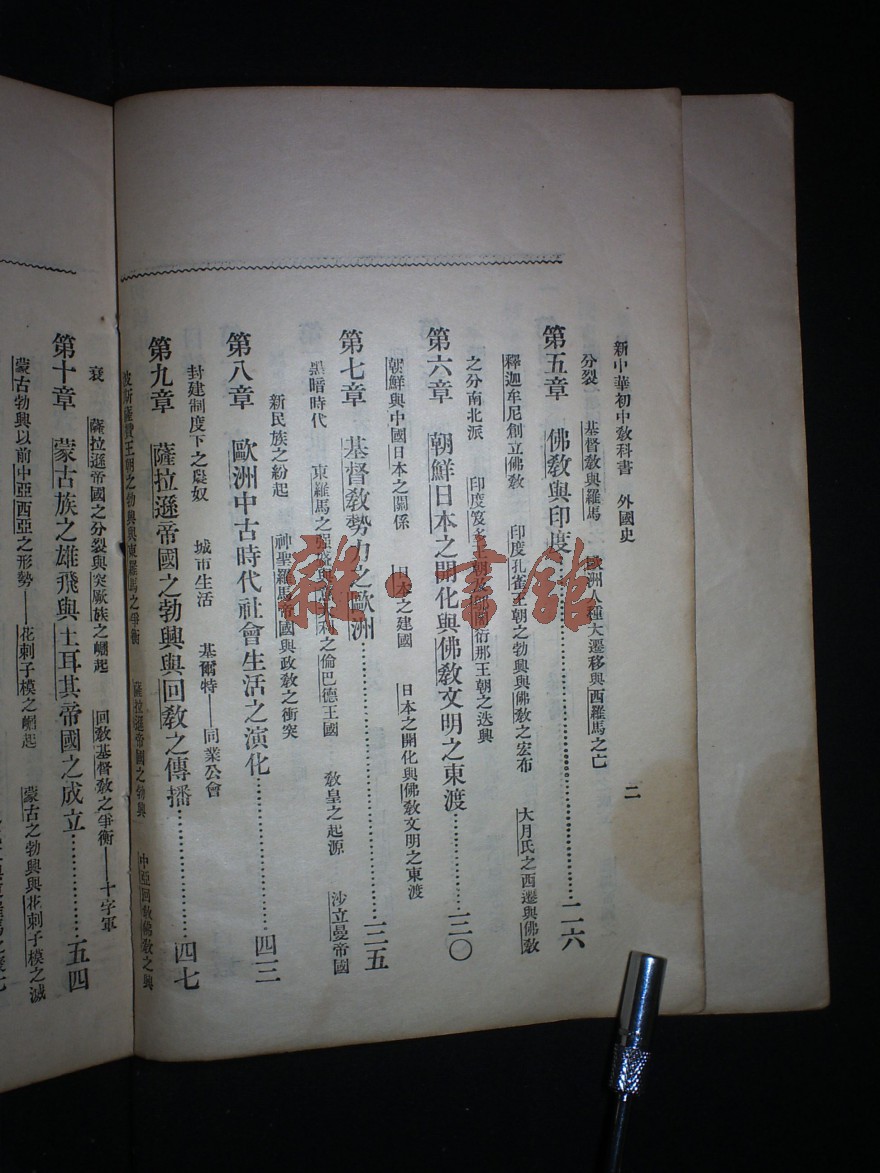 新中華初中敎科書　外國史
二
分裂　基督敎與羅馬　歐洲人種大遷移與西羅馬之亡
第五章　佛敎與印度……二六
釋迦牟尼創立佛敎　印度孔雀王朝之勃興與佛敎之宏布　大月氏之西遷與佛敎
之分南北派　印度笈多王朝及
衍那王朝之迭興
第六章　朝鮮日本之開化與佛敎文明之東渡……三〇
朝鮮與中國日本之關係　日本之建國　日本之開化與佛敎文明之東渡
第七章　基督敎勢力之歐洲……三五
黑暗時代　東羅馬之强盛與意大利之倫巴德王國　敎皇之起源　沙立曼帝國
新民族之紛起　神聖羅馬帝國與政敎之衝突
第八章　歐洲中古時代社會生活之演化……四三
封建制度下之農奴　城市生活　基爾特——同業公會
第九章　薩拉遜帝國之勃興與回敎之傳播……四七
波斯薩贊王朝之勃興與東羅馬之爭衡　薩拉遜帝國之勃興　中亞回敎佛敎之興
衰　薩拉遜帝國之分裂與突厥族之崛起　回敎基督敎之爭衡——十字軍
第十章　蒙古族之雄飛與土耳其帝國之成立……五四
蒙古勃興以前中亞西亞之形勢——花剌子模之崛起　蒙古之勃興與花剌子模之滅
雜·書館